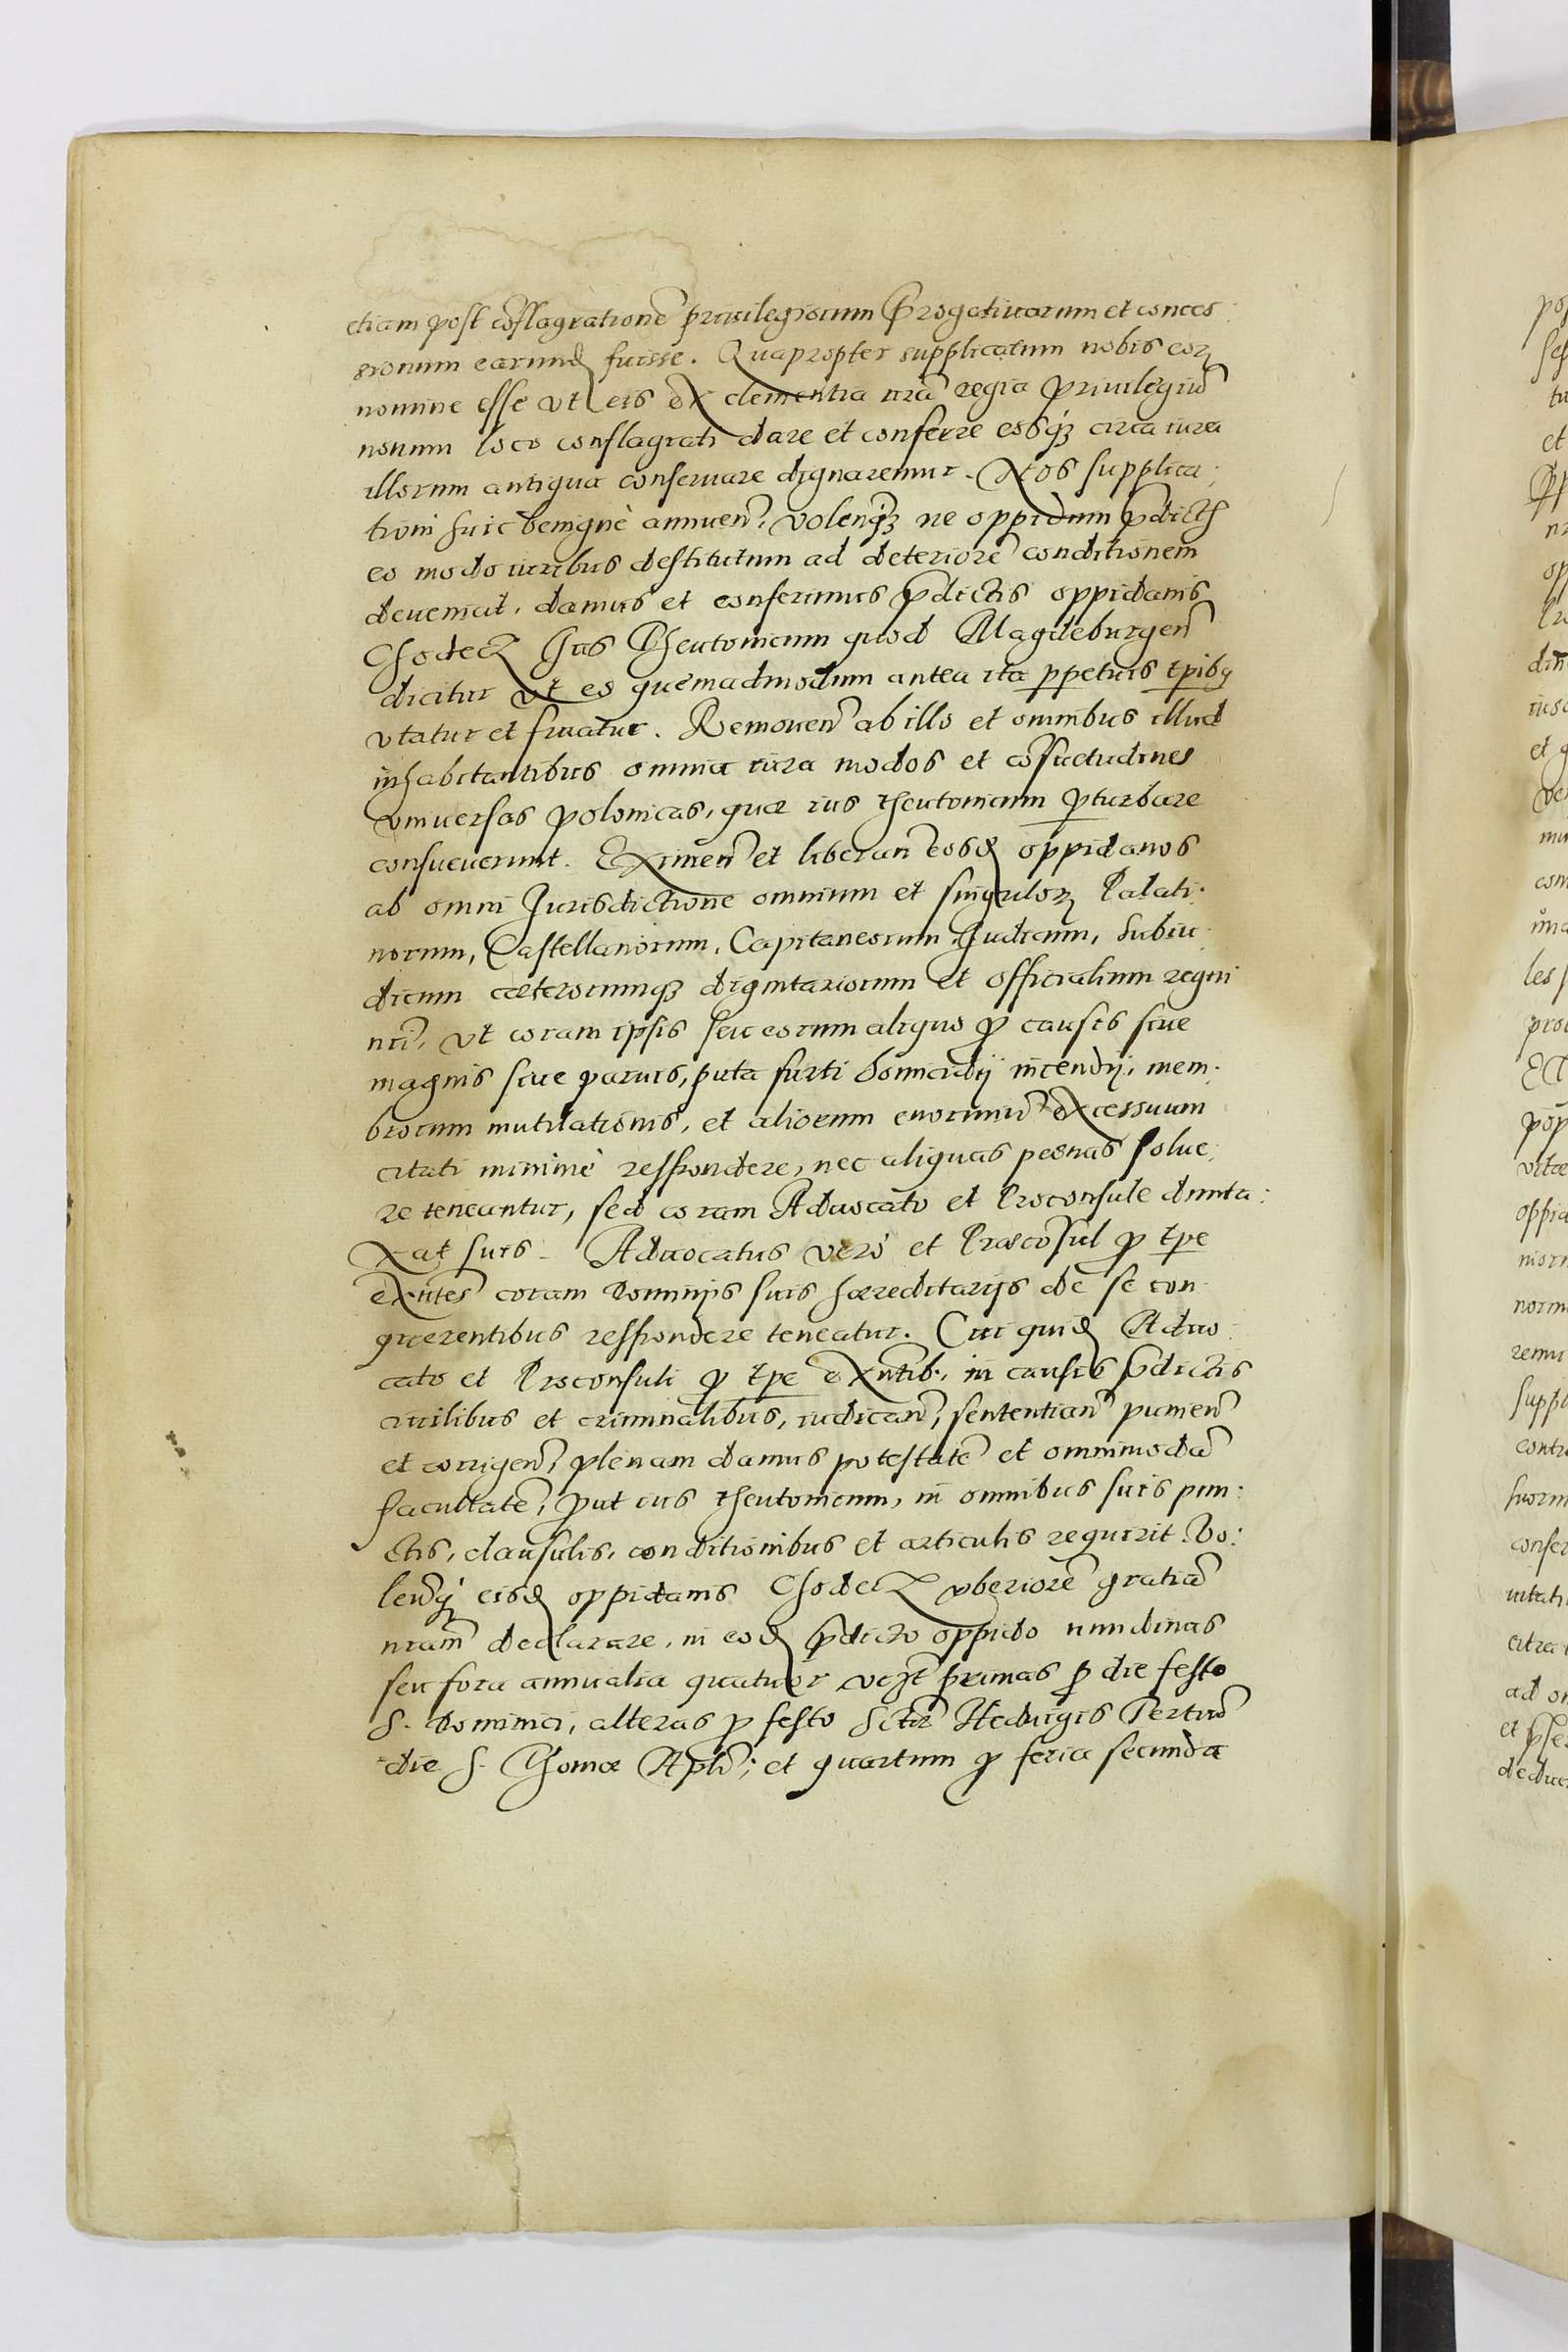 etiam post cõflagrationẽ priuilegiorum Prærogatiuarum et conces:
sionum earund fuisse. Quapropter supplicatum nobis eoꝝ
nomine esse vt eis ex clementia nrã regia Priuilegiũ
nouum loco conflagrati dare et conferre eosqꝫ circa iura
illorum antiqua conseruare dignaremur. Nos supplica:
tioni huic benignè annuen̄, volenqꝫ ne oppidum p̄dictũ
eo modo iuribus destitutum ad deteriorẽ conditionem
deueniat, damus et conferimus p̄dictis oppidanis
Chodecz Jus Theutonicum quod Magdeburgen̄
dicitur vt eo quemadmodum antea ita ꝑpetuis tp̄ibꝫ
vtatur et fruatur. Remouen̄ ab illo et omnibus illud
inhabitantibus omnia iura modos et cõsuetudines
vniuersas polonicas, quæ ius theutonicum ꝑturbare
consueuerunt. Eximen̄ et liberan̄ eosd oppidanos
ab omni Jurisdictione omnium et singuloꝝ Palati:
norum, Castellanorum, Capitaneorum Judicum, Subiu:
dicum cæterorumqꝫ dignitariorum et officialium regni
nri, vt coram ipsis seu eorum aliquo ꝓ causis siue
magnis siue paruis, puta furti homicidij incendij, mem:
brorum mutilationis, et aliorum enormiũ excessuum
citati minimè respondere, nec aliquas poenas solue:
re teneantur, sed coram Aduocato et Proconsule dunta:
xat suis. Aduocatus verò et Procõsul ꝓ tp̄e
exñtes coram Dominijs suis hæreditarijs de se con:
quærentibus respondere teneatur. Cui quid Aduo:
cato et Proconsuli ꝓ tp̄e exñtib., in causis p̄dictis
ciuilibus et criminalibus, iudican̄, sententian̄ punien̄
et corrigen̄, plenam damus potestatẽ et omnimodã
facultatẽ, ꝓut ius theutonicum, in omnibus suis pun:
ctis, clausulis, conditionibus et articulis requirit. Vo:
lenqꝫ eisd oppidanis Chodecz vberiorẽ gratiã
nram declarare, in eod p̄dicto oppido nundinas
seu fora annualia quatuor vezt primas ꝓ die festo
S. Dominici, alteras ꝓ festo Sctæ Heduigis Tertiũ
die S. Thomæ Apli; et quartum ꝓ feria secunda